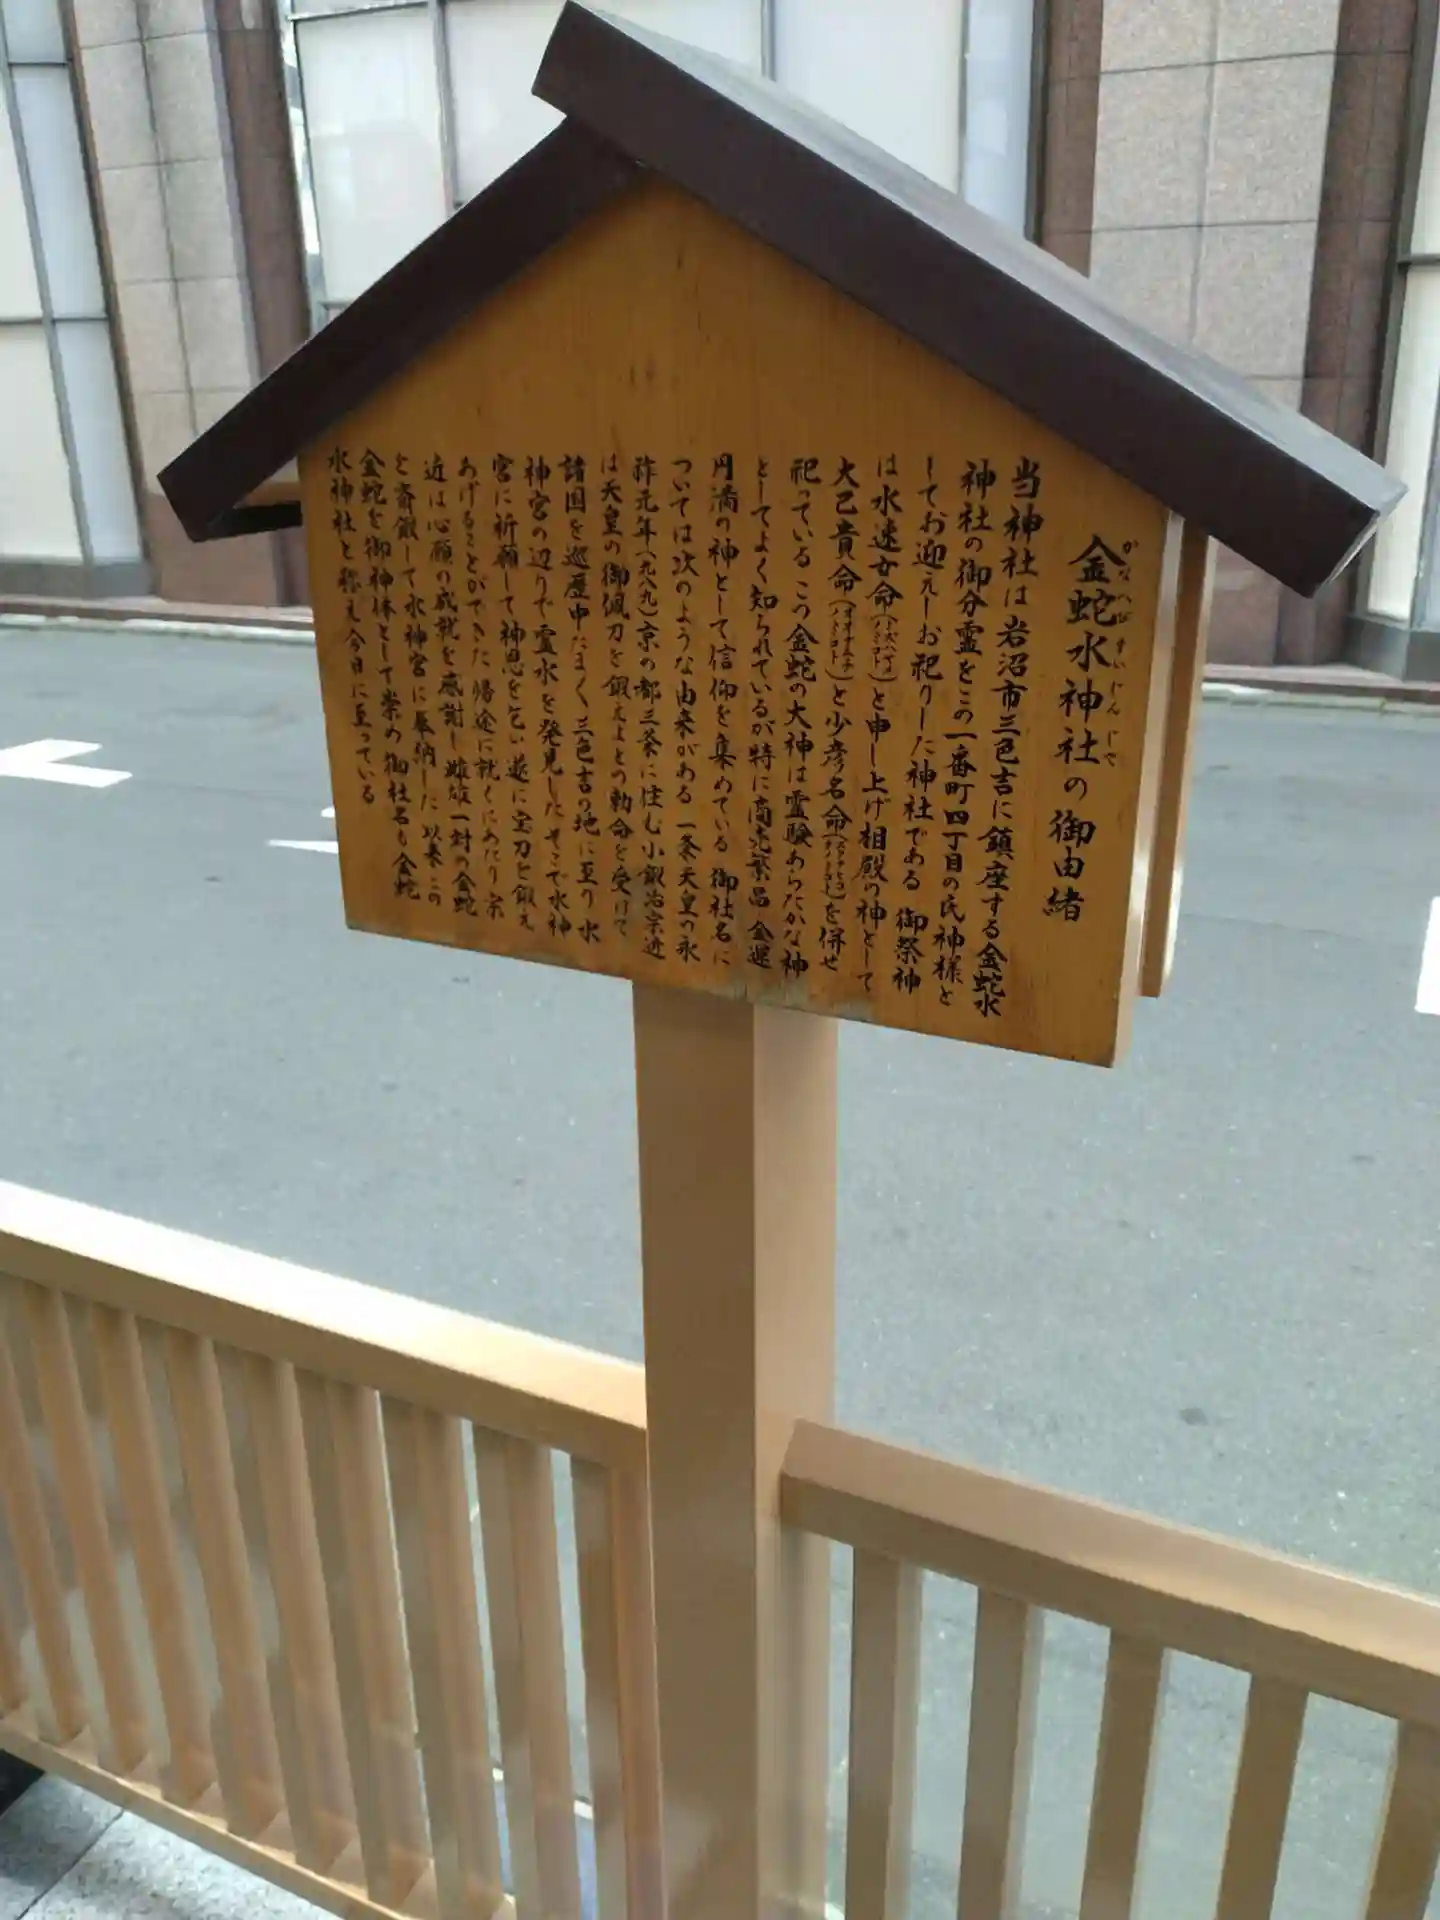 金蛇水神社の御由緒
当神社は岩沼市三色吉に鎮座する金蛇水
神社の御分霊をこの一番町四丁目の氏神様と
してお迎えしお祀りした神社である 御祭神
は水速女命と申し上げ相殿の神として
大己貴命と少彦名命を併せ
祀っている この金蛇の大神は霊験あらたかな神
としてよく知られているが特に商売繁昌 金運
円満の神として信仰を集めている 御社名に
ついては次のような由来がある 一条天皇の永
祚元年(九八九)京の都三条に住む小鍛治宗近
は天皇の御佩刀を鍛えよとの勅命を受けて
諸国を巡歴中たまく三色吉の地に至り 水
神宮の辺りで霊水を発見した そこで水神
宮に祈願して神恩を乞い遂に宝刀を鍛え
あげることができた 帰途に就くにあたり 宗
近は心願の成就を感謝し雌雄一対の金蛇
を斎鍛して水神宮に奉納した 以来この
金蛇を御神体として崇め 御社名も金蛇
水神社と称え今日に至っている